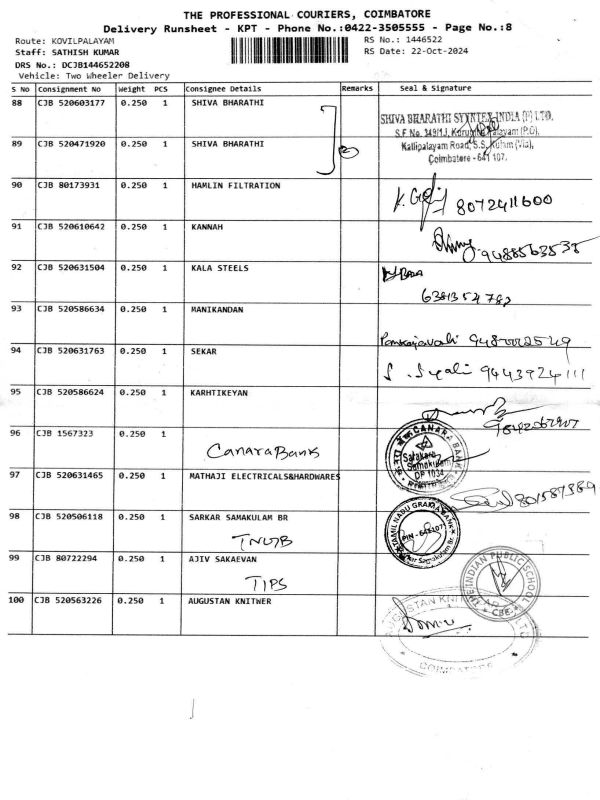 THE PROFESSIONAL COURIERS, COIMBATORE
Delivery Runsheet - KPT - Phone No.:0422-3505555 - Page No.:8
Route: KOVILPALAYAM
RS No.: 1446522
Staff: SATHISH KUMAR
RS Date: 22-Oct-2024
DRS No.: DCJB144652208
Vehicle: Two Wheeler Delivery
S No Consignment No Weight PCS Consignee Details Remarks Seal & Signature
88 CJB 520603177 0.250 1 SHIVA BHARATHI
SHIVA BHARATHI SYNTEX INDIA (P) LTD.
S.F No. 349/1J, (P.O),
89 CJB 520471920 0.250 1 SHIVA BHARATHI
Kallipalayam Road, S.S. Kulam (Via),
Coimbatore - 641 107.
90 CJB 80173931 0.250 1 HAMLIN FILTRATION
8072411600
91 CJB 520610642 0.250 1 KANNAH
9488563538
92 CJB 520631504 0.250 1 KALA STEELS
BALA
6381354782
93 CJB 520586634 0.250 1 MANIKANDAN
94 CJB 520631763 0.250 1 SEKAR
9443924111
95 CJB 520586624 0.250 1 KARHTIKEYAN
96 CJB 1567323 0.250 1
Canara Bank
CANARA BANK
Samakulam
DP 1034
97 CJB 520631465 0.250 1 MATHAJI ELECTRICALS&HARDWARES
98 CJB 520506118 0.250 1 SARKAR SAMAKULAM BR
TNGB
TAMIL NADU GRAMA BANK
PIN - 641107
99 CJB 80722294 0.250 1 AJIV SAKAEVAN
TIPS
THE INDIAN PUBLIC SCHOOL
CBE.
100 CJB 520563226 0.250 1 AUGUSTAN KNITWER
AUGUSTAN
COIMBATORE